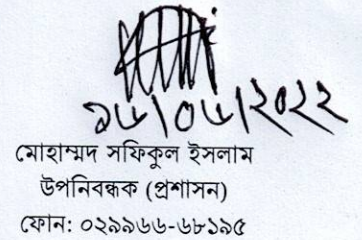 ১৬/০৬/২০২২
মোহাম্মদ সফিকুল ইসলাম
উপনিবন্ধক (প্রশাসন)
ফোন: ০২৯৯৬৬-৬৮১৯৫